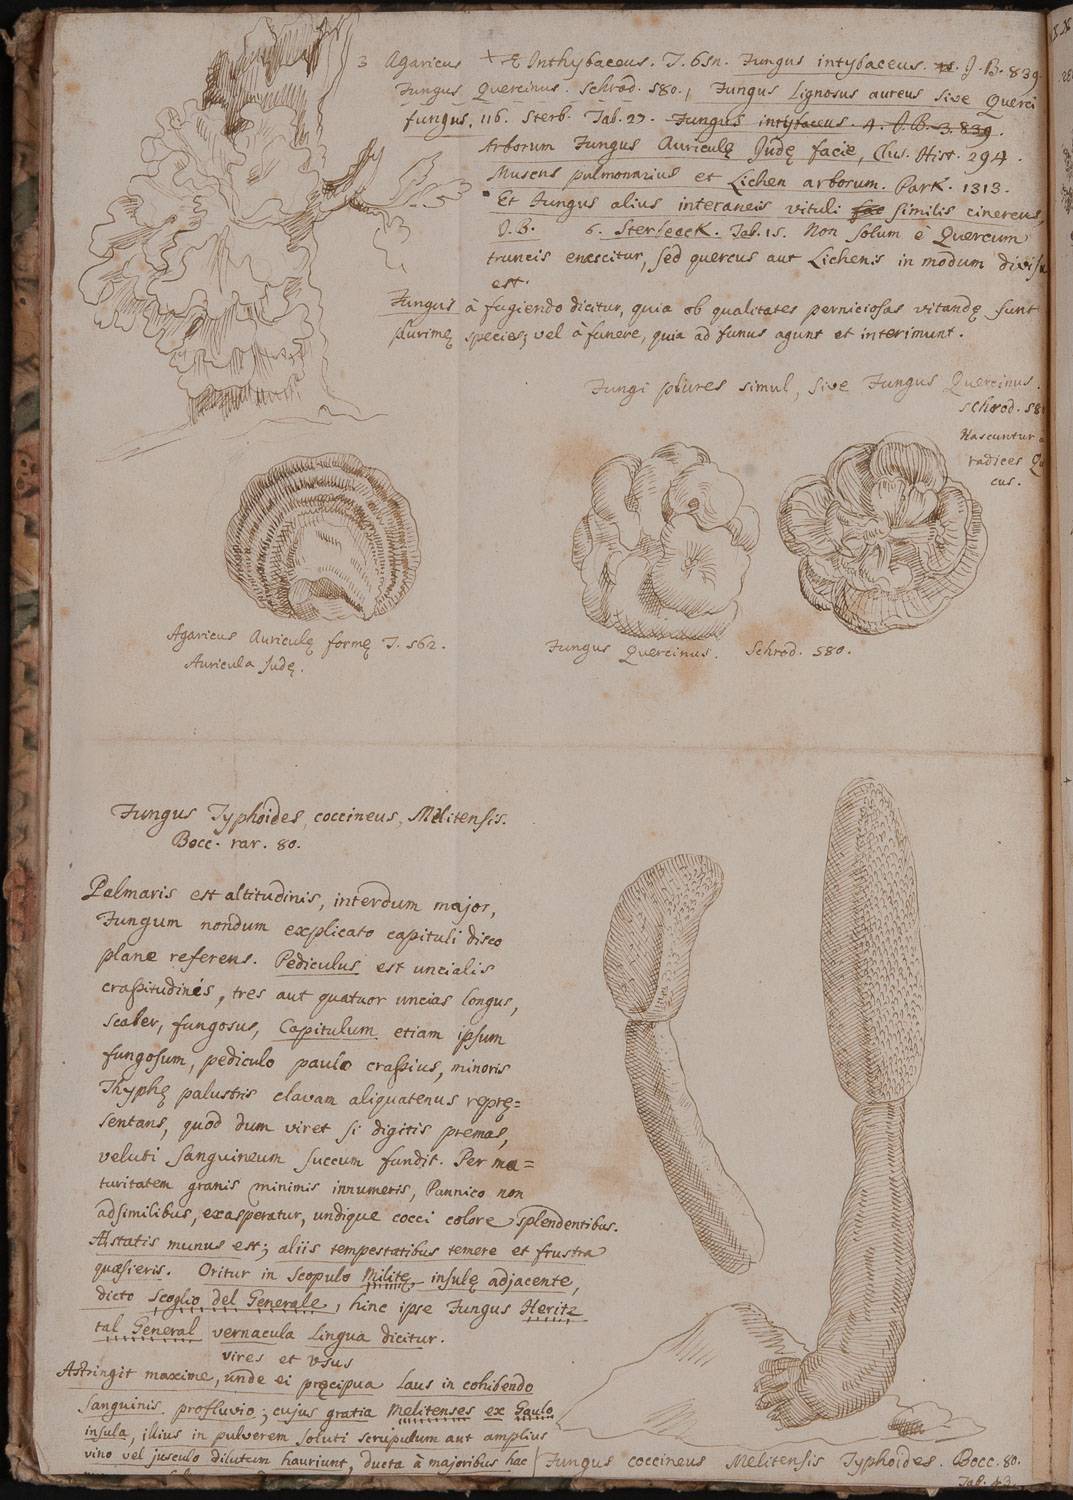 3 Agaricus + E Inthybaceus. T. 6sn. Fungus intybaceus. J. B. 839.
Fungus Quercinus. Schrod. 580., Fungus Lignosus aureus sive Querci
fungus, 116. Sterb. Tab. 27. Fungus intybaceus. 4. J. B. 3. 839.
Arborum Fungus Auriculę Judę facie, Clus. Hist. 294.
Muscus pulmonarius et Lichen arborum. Park. 1313.
Et Fungus alius interaneis vituli fac similis cinereus,
J. B. 6. Sterbeeck. Tab. 15. Non solum è Quercum
truncis enascitur, sed quercus aut Lichenis in modum divisu
est.
Fungus à fugiendo dicitur, quia ob qualitates perniciosas vitandę sunt
plurimę species; vel à funere, quia ad funus agunt et interimunt.
Fungi plures simul, sive Fungus Quercinus.
Schrod. 580
Nascuntur
radices Qu
cus.
Agaricus Auriculę formę T. 562.
Auricula Judę.
Fungus Quercinus. Schrod. 580.
Fungus Typhoides coccineus, Melitensis.
Bocc. rar. 80.
Palmaris est altitudinis, interdum major,
Fungum nondum explicato capituli disco
plane referens. Pediculus est uncialis
crassitudinis, tres aut quatuor uncias longus,
scaber, fungosus, Capitulum etiam ipsum
fungosum, pediculo paulo crassius, minoris
Thyphę palustris clavam aliquatenus reprę=
sentans, quod dum viret si digitis premas,
veluti sanguineum succum fundit. Per ma=
turitatem granis minimis innumeris, Pannico non
adsimilibus, exasperatur, undique cocci colore splendentibus.
Æstatis munus est; aliis tempestatibus temere et frustra
quæsieris. Oritur in scopulo Militę insulę adjacente,
dicto Scoglio del Generale, hinc ipse Fungus Heritz
tal General vernacula lingua dicitur.
vires et usus
Astringit maxime, unde ei pręcipua laus in cohibendo
sanguinis profluvio; cujus gratia Melitenses ex Gaulo
insula, illius in pulverem soluti scrupulum aut amplius
vino vel jusculo dilutum hauriunt, ducta à majoribus hac
Fungus coccineus Melitensis Typhoides. Bocc. 80.
Tab. 43.